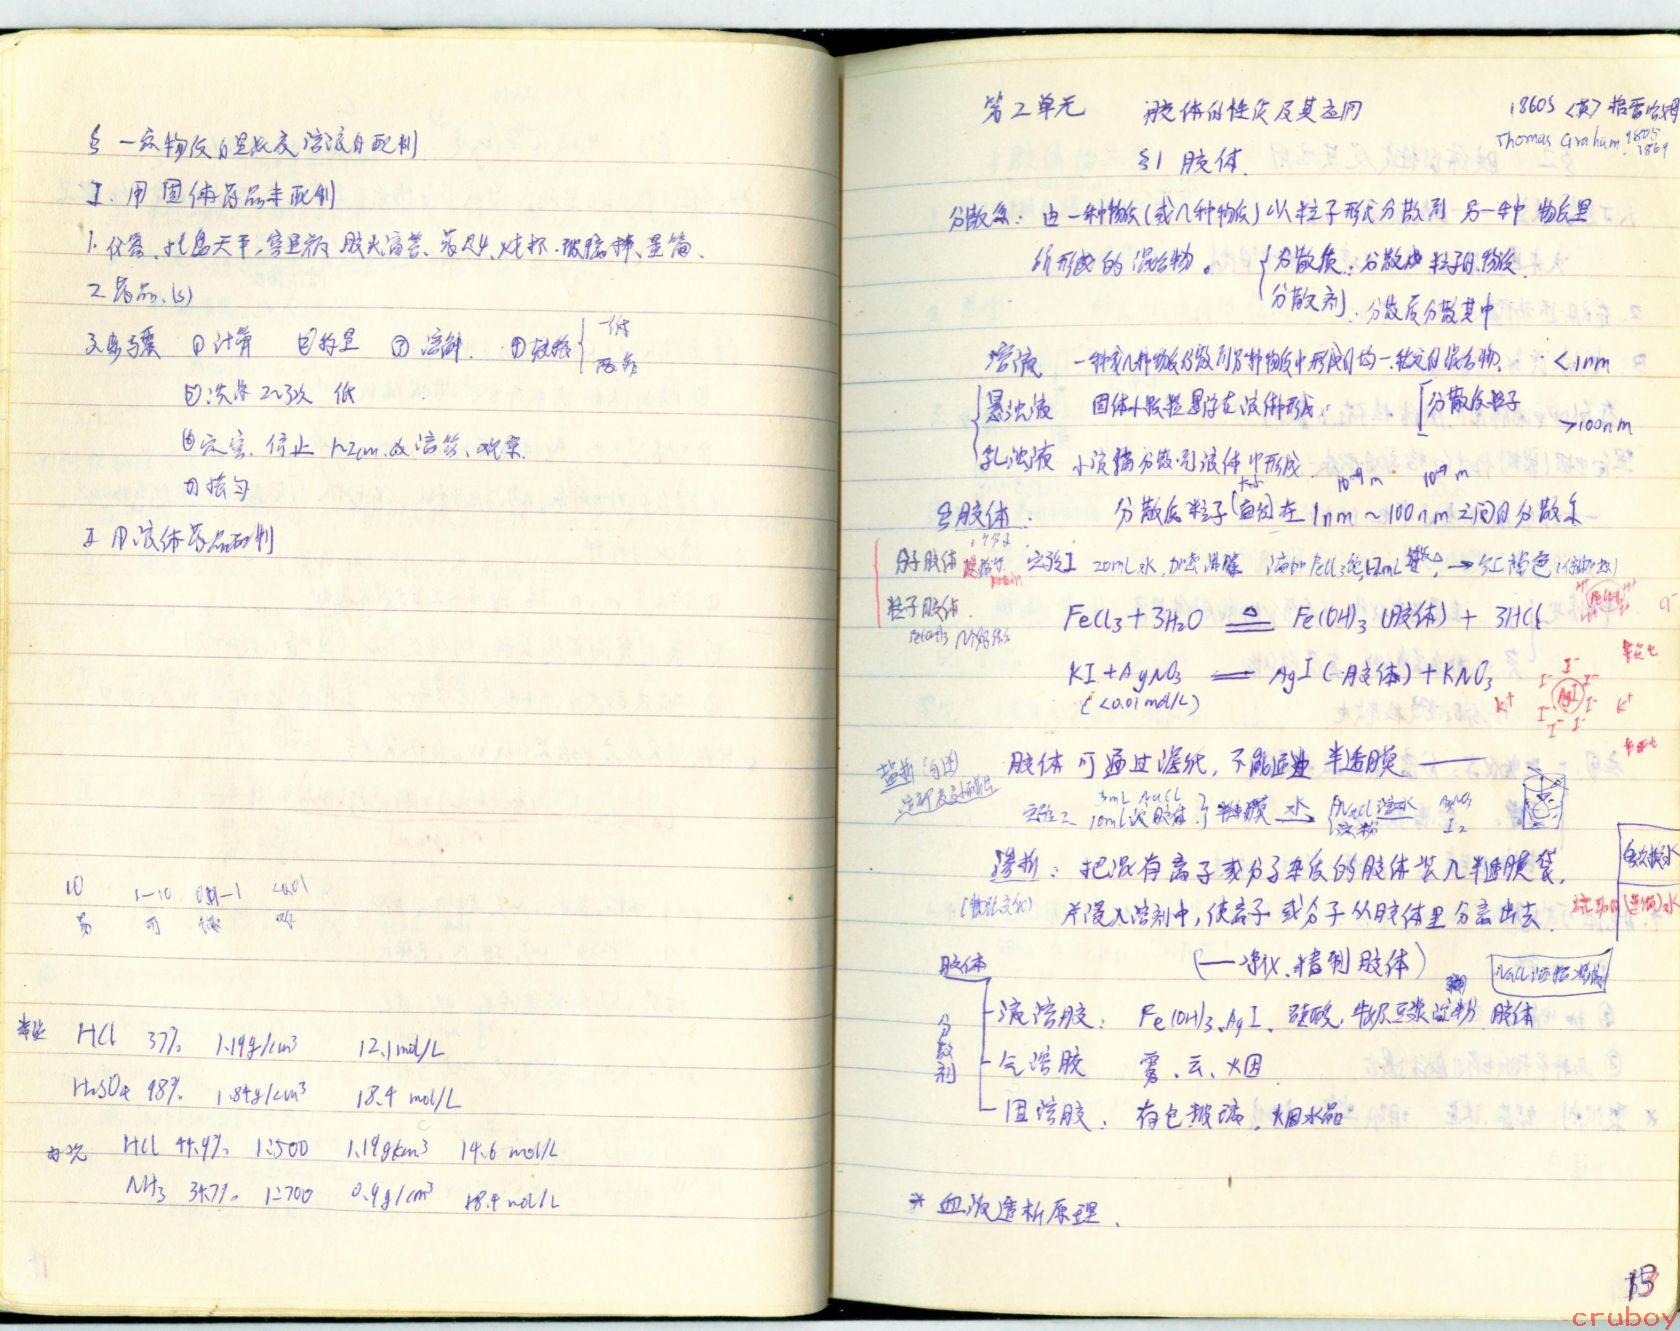 § 一定物质的量浓度溶液的配制
I. 用固体药品来配制
1. 仪器. 托盘天平、容量瓶 胶头滴管、药匙、烧杯、玻璃棒、量筒、
2 药品.(s)
3.步骤 ①计算 ②称量 ③溶解. ④转移
一低
两靠
⑤洗涤 2~3次 低
⑥定容. 停止 1~2cm 改滴管、观察.
⑦摇匀
II 用液体药品配制
10 1-10 0.01-1 <0.01
易 可 微 难
HCl 37% 1.19g/cm³ 12.1mol/L
H₂SO₄ 98% 1.84g/cm³ 18.4 mol/L
HCl 44.9% 1:500 1.19g/cm³ 14.6 mol/L
NH₃ 34.7% 1:700 0.9g/cm³ 18.4 mol/L
第2单元 胶体的性质及其应用
1860S <英> 格雷哈姆
Thomas Graham. 1805
1869
§1 胶体.
分散系: 由一种物质(或几种物质)以粒子形式分散到另一种物质里
所形成的混合物。 分散质: 分散成粒子的物质.
分散剂: 分散质分散其中
溶液 一种或几种物质分散到另一种物质中形成的均一稳定的混合物. <1nm
悬浊液 固体小颗粒悬浮在液体形成. 分散质粒子
>100nm
乳浊液 小液滴分散到液体中形成
10⁻⁹m 10⁻⁹m
胶体: 分散质粒子(直径)在1nm~100nm之间的分散系
分子胶体 淀粉
粒子胶体.
Fe(OH)₃
实验I 20mL水,加热沸腾 滴加FeCl₃ 1~2mL → 红褐色
FeCl₃ + 3H₂O ⇌ Fe(OH)₃ (胶体) + 3HCl
KI + AgNO₃ = AgI (胶体) + KNO₃
(<0.01mol/L)
H⁺ H⁺
Cl⁻
K⁺ I⁻ AgI I⁻ K⁺
胶体可通过滤纸, 不能透过半透膜 ——
盐析(可逆)
实验二 5mL NaCl
10ml淀粉胶体 } 半透膜 水→ { NaCl 溶水 AgNO₃
淀粉 I₂
渗析: 把混有离子或分子杂质的胶体装入半透膜袋,
并浸入溶剂中,使离子或分子从胶体里分离出去.
(—净化、精制胶体)
胶体
分散剂
液溶胶: Fe(OH)₃、AgI、硅酸、牛奶豆浆淀粉 胶体
气溶胶 雾、云、烟
固溶胶: 有色玻璃、烟水晶
* 血液透析原理.
13
cruboy